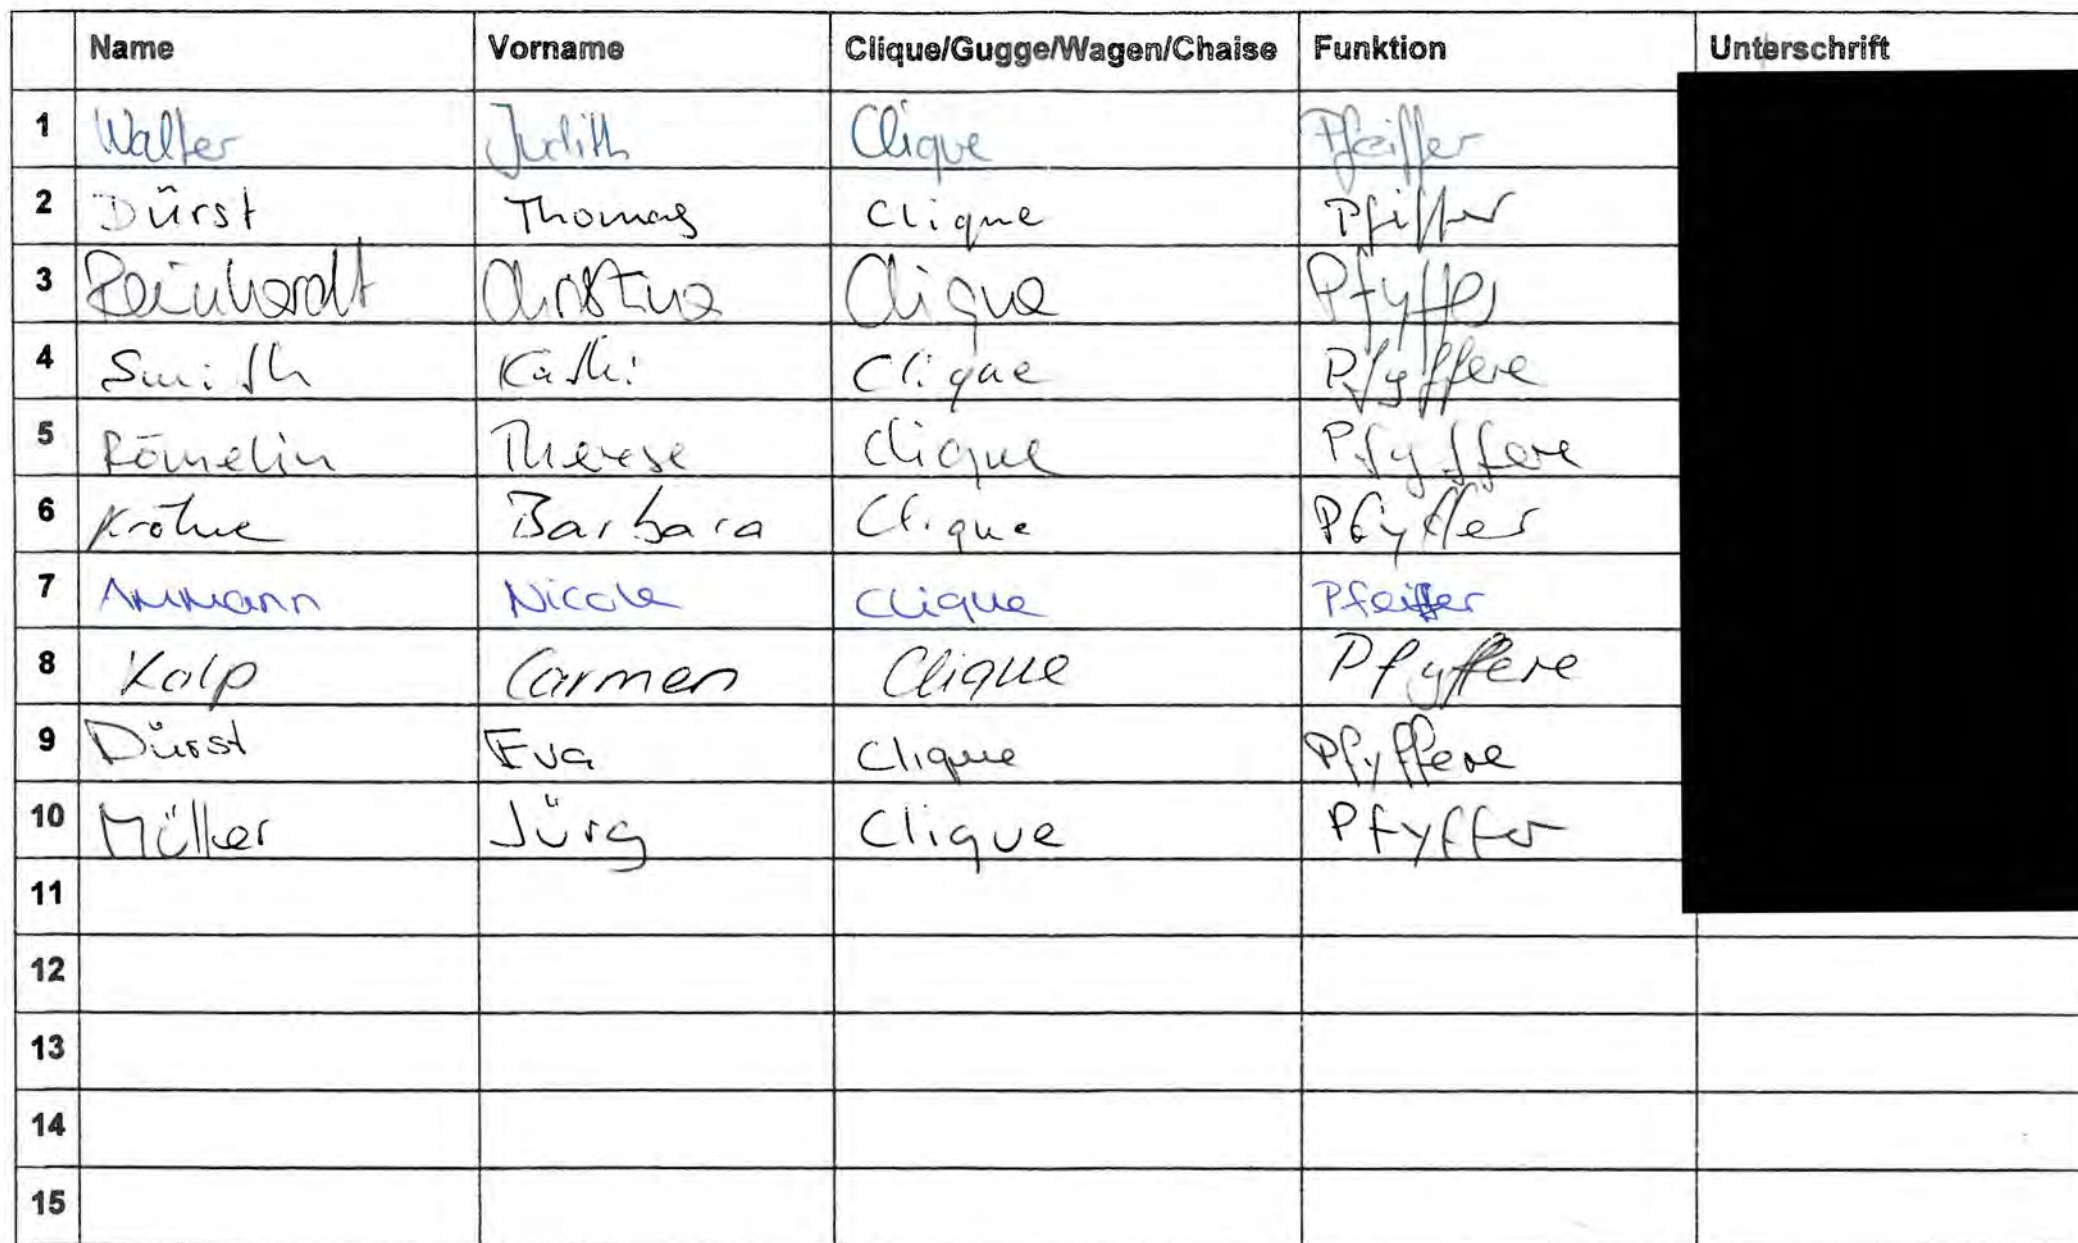 Name Vorname Clique/Gugge/Wagen/Chaise Funktion Unterschrift
1 Walter Judith Clique Pfeiffer
2 Dürst Thomas Clique Pfiffer
3 Reinhardt Christine Clique Pfyffer
4 Smith Käthi Clique Pfyffere
5 Römelin Therese Clique Pfyffere
6 Barbara Clique Pfyffer
7 Ammann Nicole Clique Pfeiffer
8 Kolp Carmen Clique Pfyffere
9 Dürst Eva Clique Pfyffere
10 Müller Jürg Clique Pfyffer
11
12
13
14
15